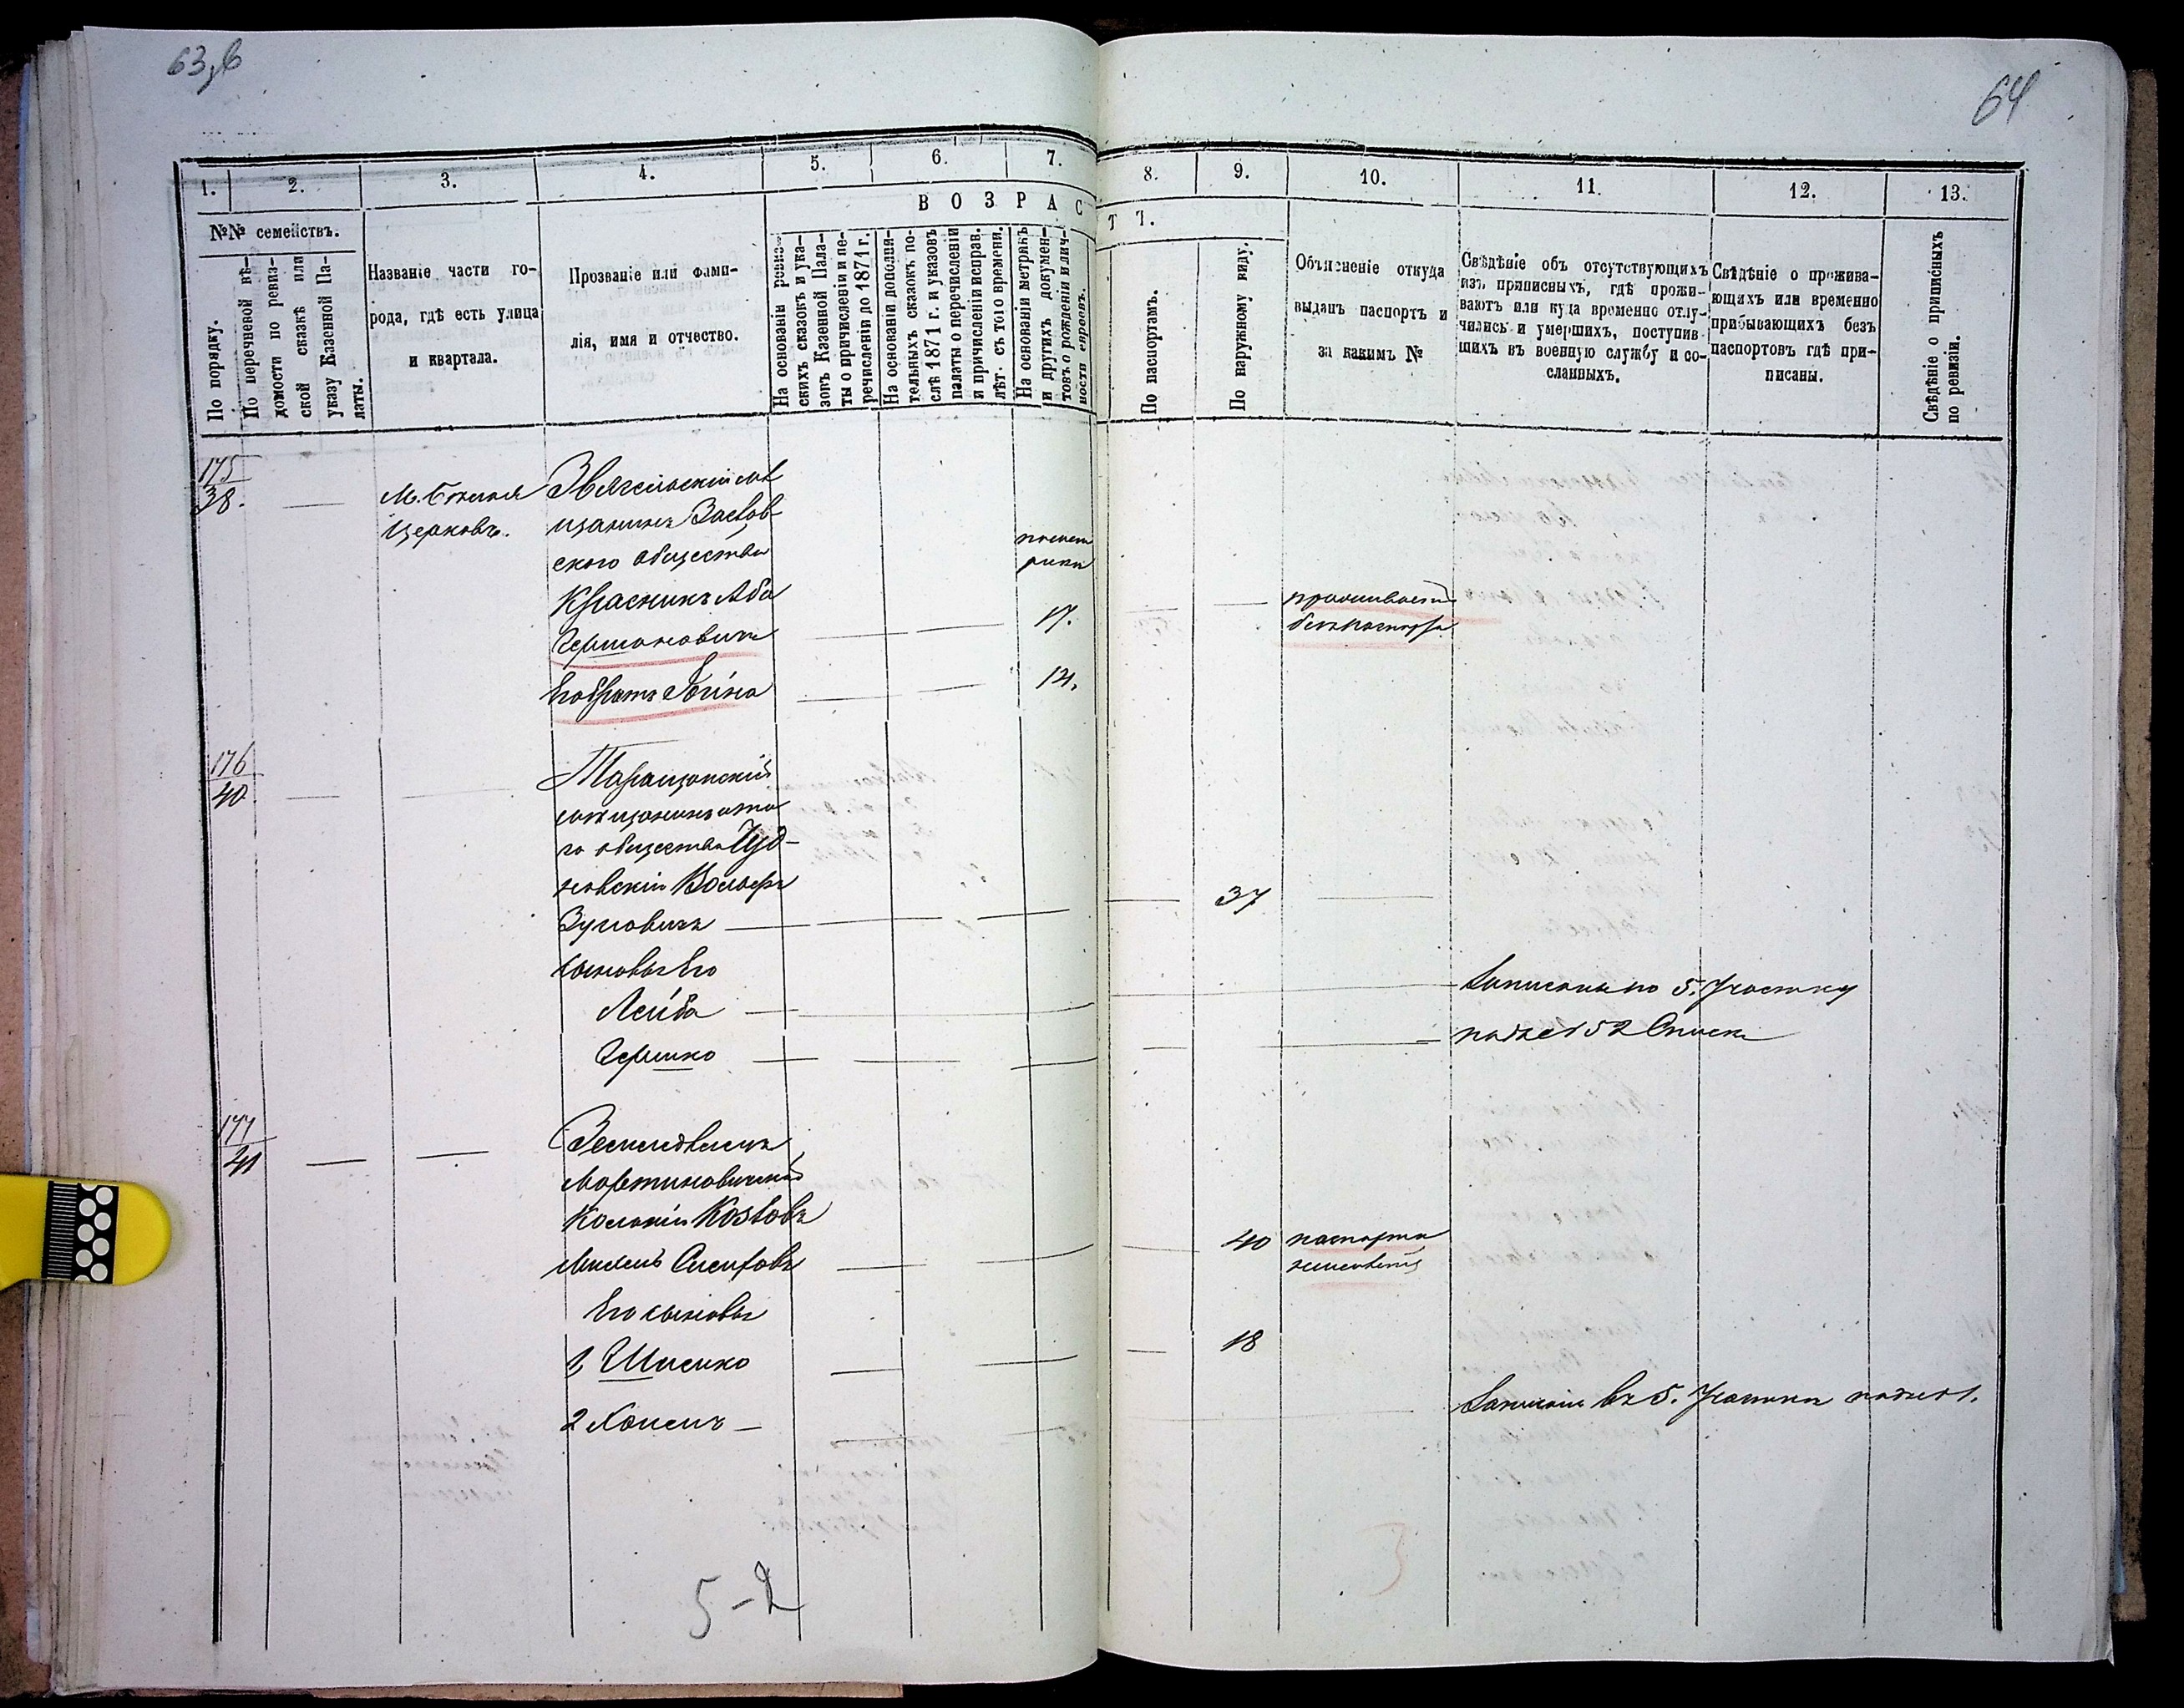 63,б
64
1.
2.
3.
4.
5.
6.
7.
8.
9.
10.
11.
12.
13.
№№ семействъ.
В О З Р А С
Т Ъ.
По порядку.
По перечневой вѣ-
домости по ревиз-
ской сказкѣ или
указу Казенной Па-
латы.
Названіе части го-
рода, гдѣ есть улица
и квартала.
Прозваніе или фами-
лія, имя и отчество.
На основаніи ревиз-
скихъ сказокъ и ука-
зовъ Казенной Пала-
ты о причисленіи и пе-
речисленіи до 1871 г.
На основаніи дополни-
тельныхъ сказокъ по-
слѣ 1871 г. и указовъ
палаты о перечисленіи
и причисленіи исправ.
лѣт. съ того времени.
На основаніи метрикъ
и другихъ докумен-
товъ о рожденіи и лич-
ности евреевъ.
По паспортамъ.
По наружному виду.
Объясненіе откуда
выданъ паспортъ и
за какимъ №
Свѣдѣніе объ отсутствующихъ
изъ приписныхъ, гдѣ прожи-
ваютъ или куда временно отлу-
чились и умершихъ, поступив
шихъ въ военную службу и со-
сланныхъ.
Свѣдѣніе о прожива-
ющихъ или временно
прибывающихъ безъ
паспортовъ гдѣ при-
писаны.
Свѣдѣніе о приписныхъ
по ревизіи.
175
38.
М. Бѣлая
Церковь.
Звягельскій мѣ
щанинъ
ского общества
Красникъ Аба
Гершоновичъ
17.
проживаетъ
безъ паспорта
Его братъ
14.
176
40.
Таращанскій
мѣщанинъ
го общества Чуд-
новскій Вольфъ
Зусовичъ
37
Сыновья Его
Лейба
Записаны по 5. Участку
под № 152 Списк
Гершко
177
41
Земледѣлецъ
Мартиновичской
Колоніи Козловъ
40 паспорта
Его сыновья
1, Шисико
18
2 Хаимъ
Записанъ въ 5. Участкѣ под № 1.
5-2
3